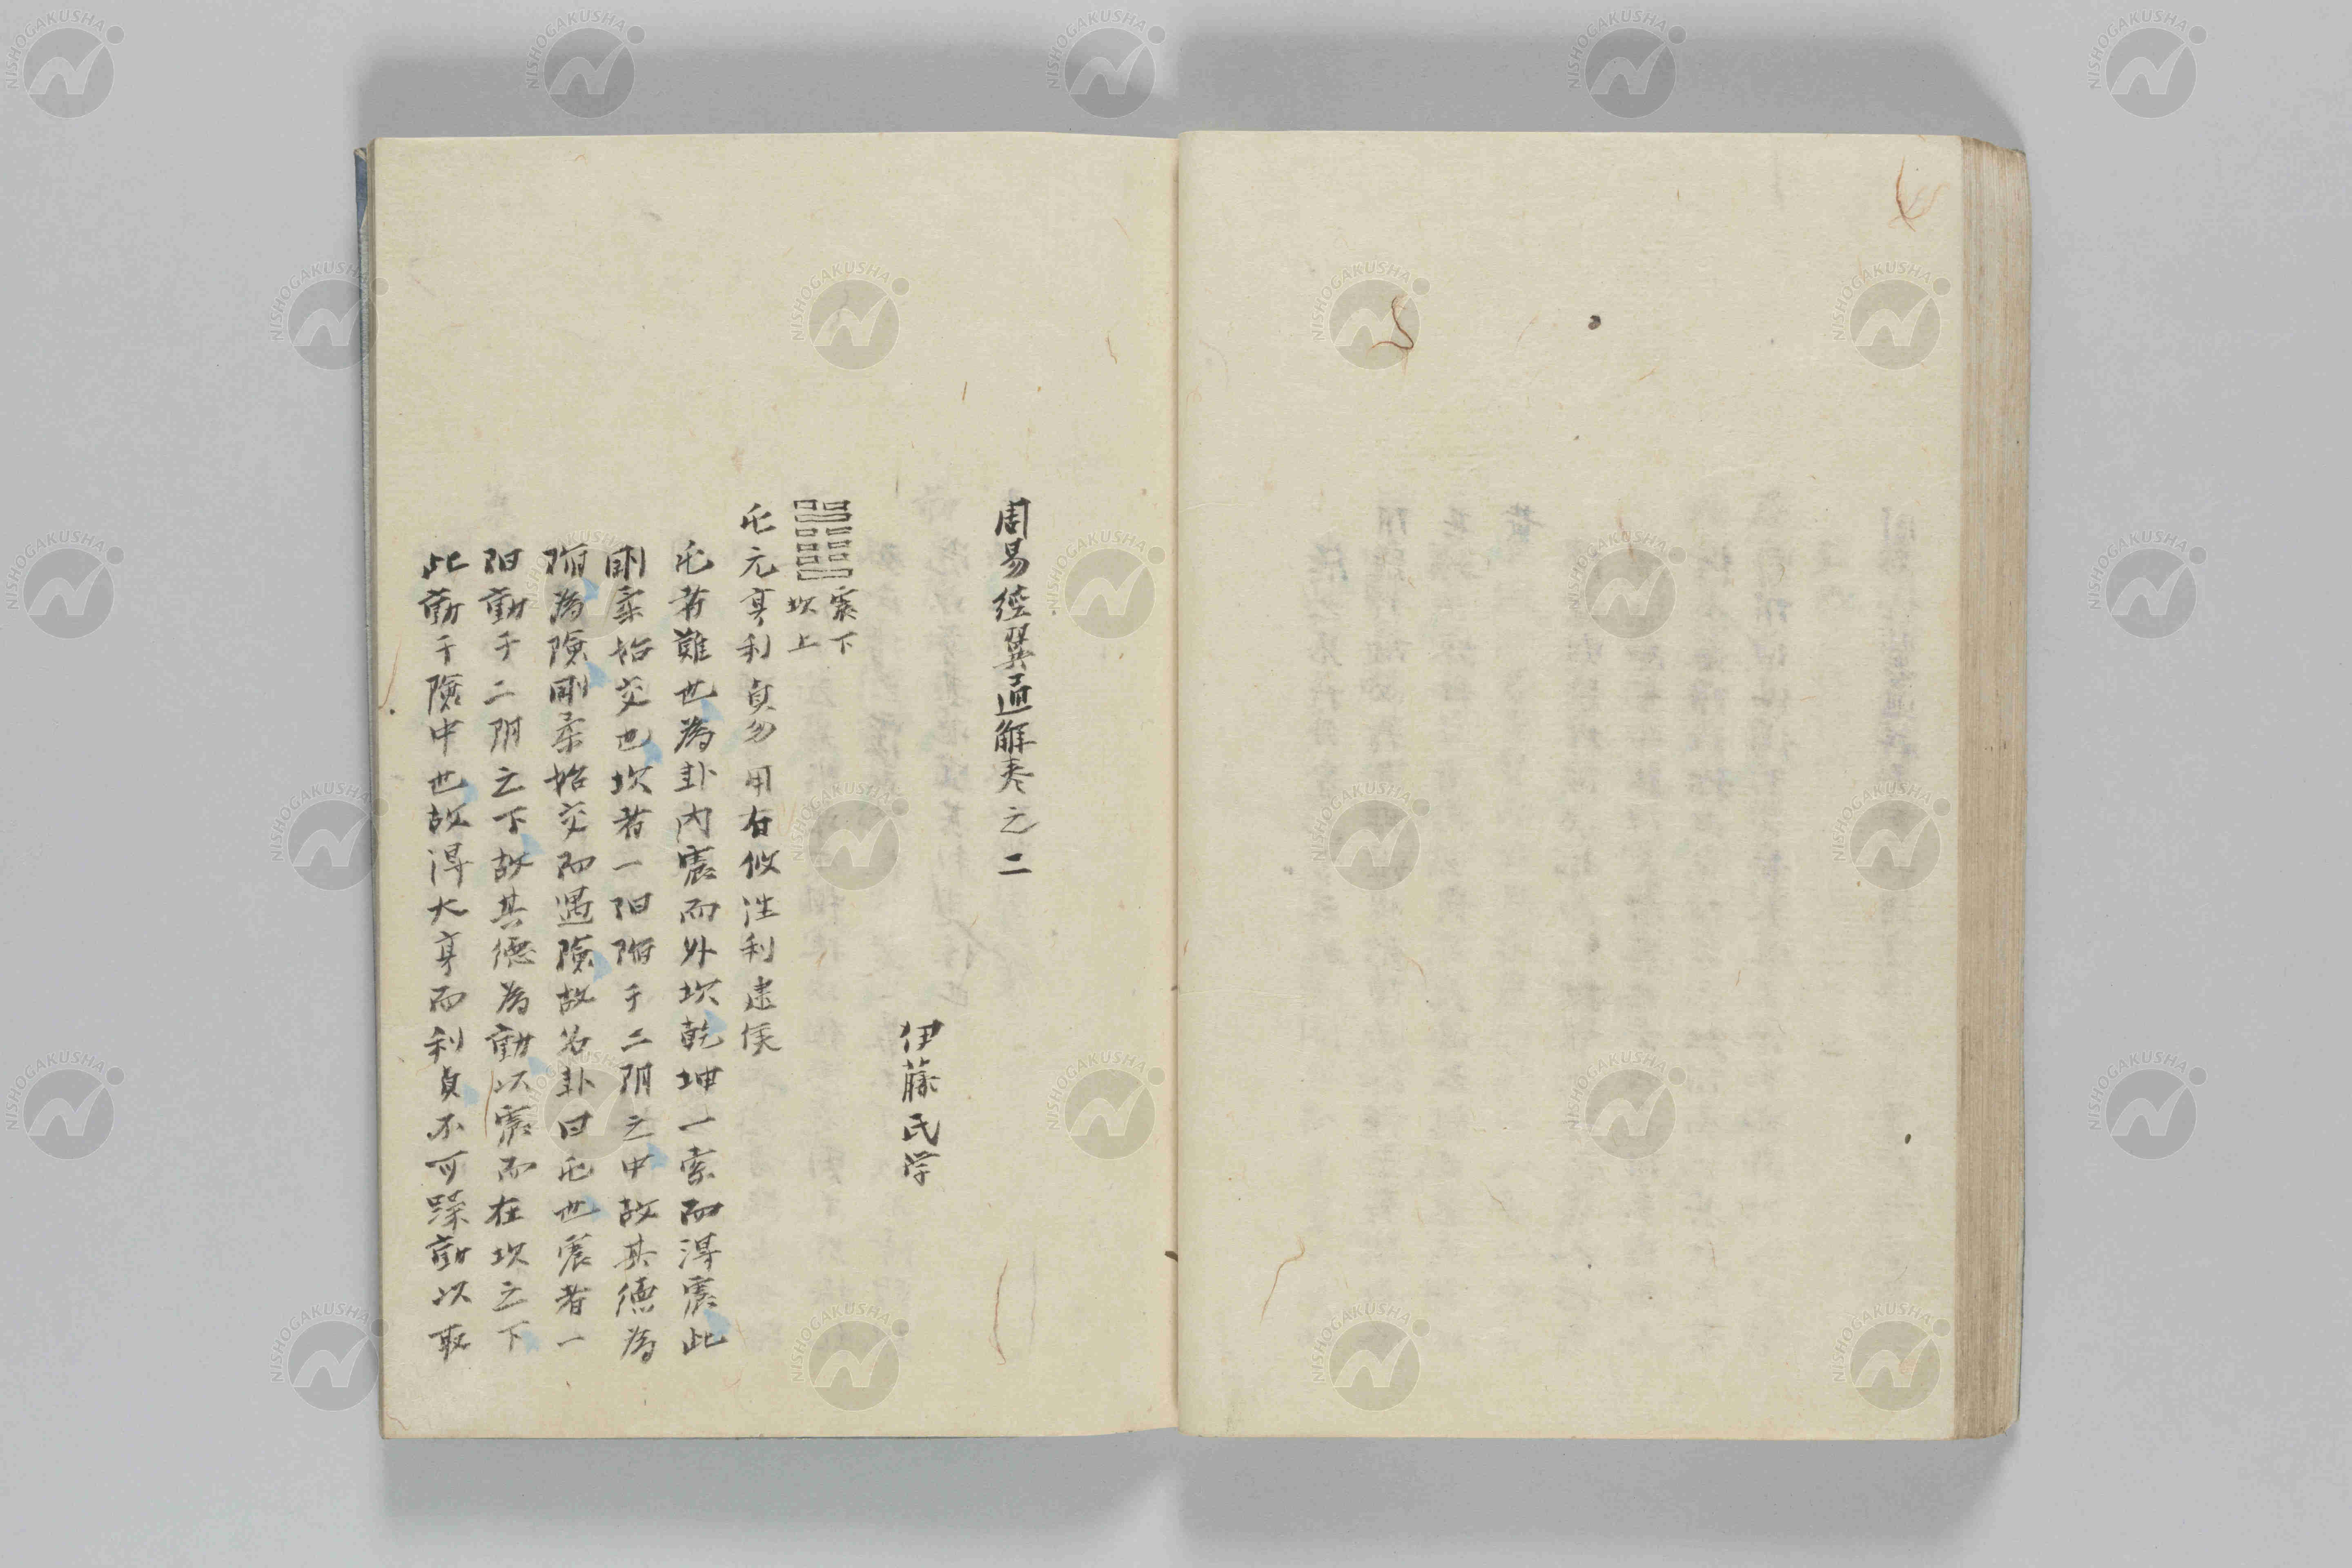 周易經翼通解卷之二
伊藤氏学
震下
坎上
屯元亨利貞勿用有攸往利建侯
屯者難也為卦内震而外坎乾坤一索而得震此
剛柔始交也坎者一阳陷于二阴之中故其德為
陷為險剛柔始交而遇險故名卦曰屯也震者一
阳動于二阴之下故其德為動以震而在坎之下
此動于險中也故得大亨而利貞不可躁動以取